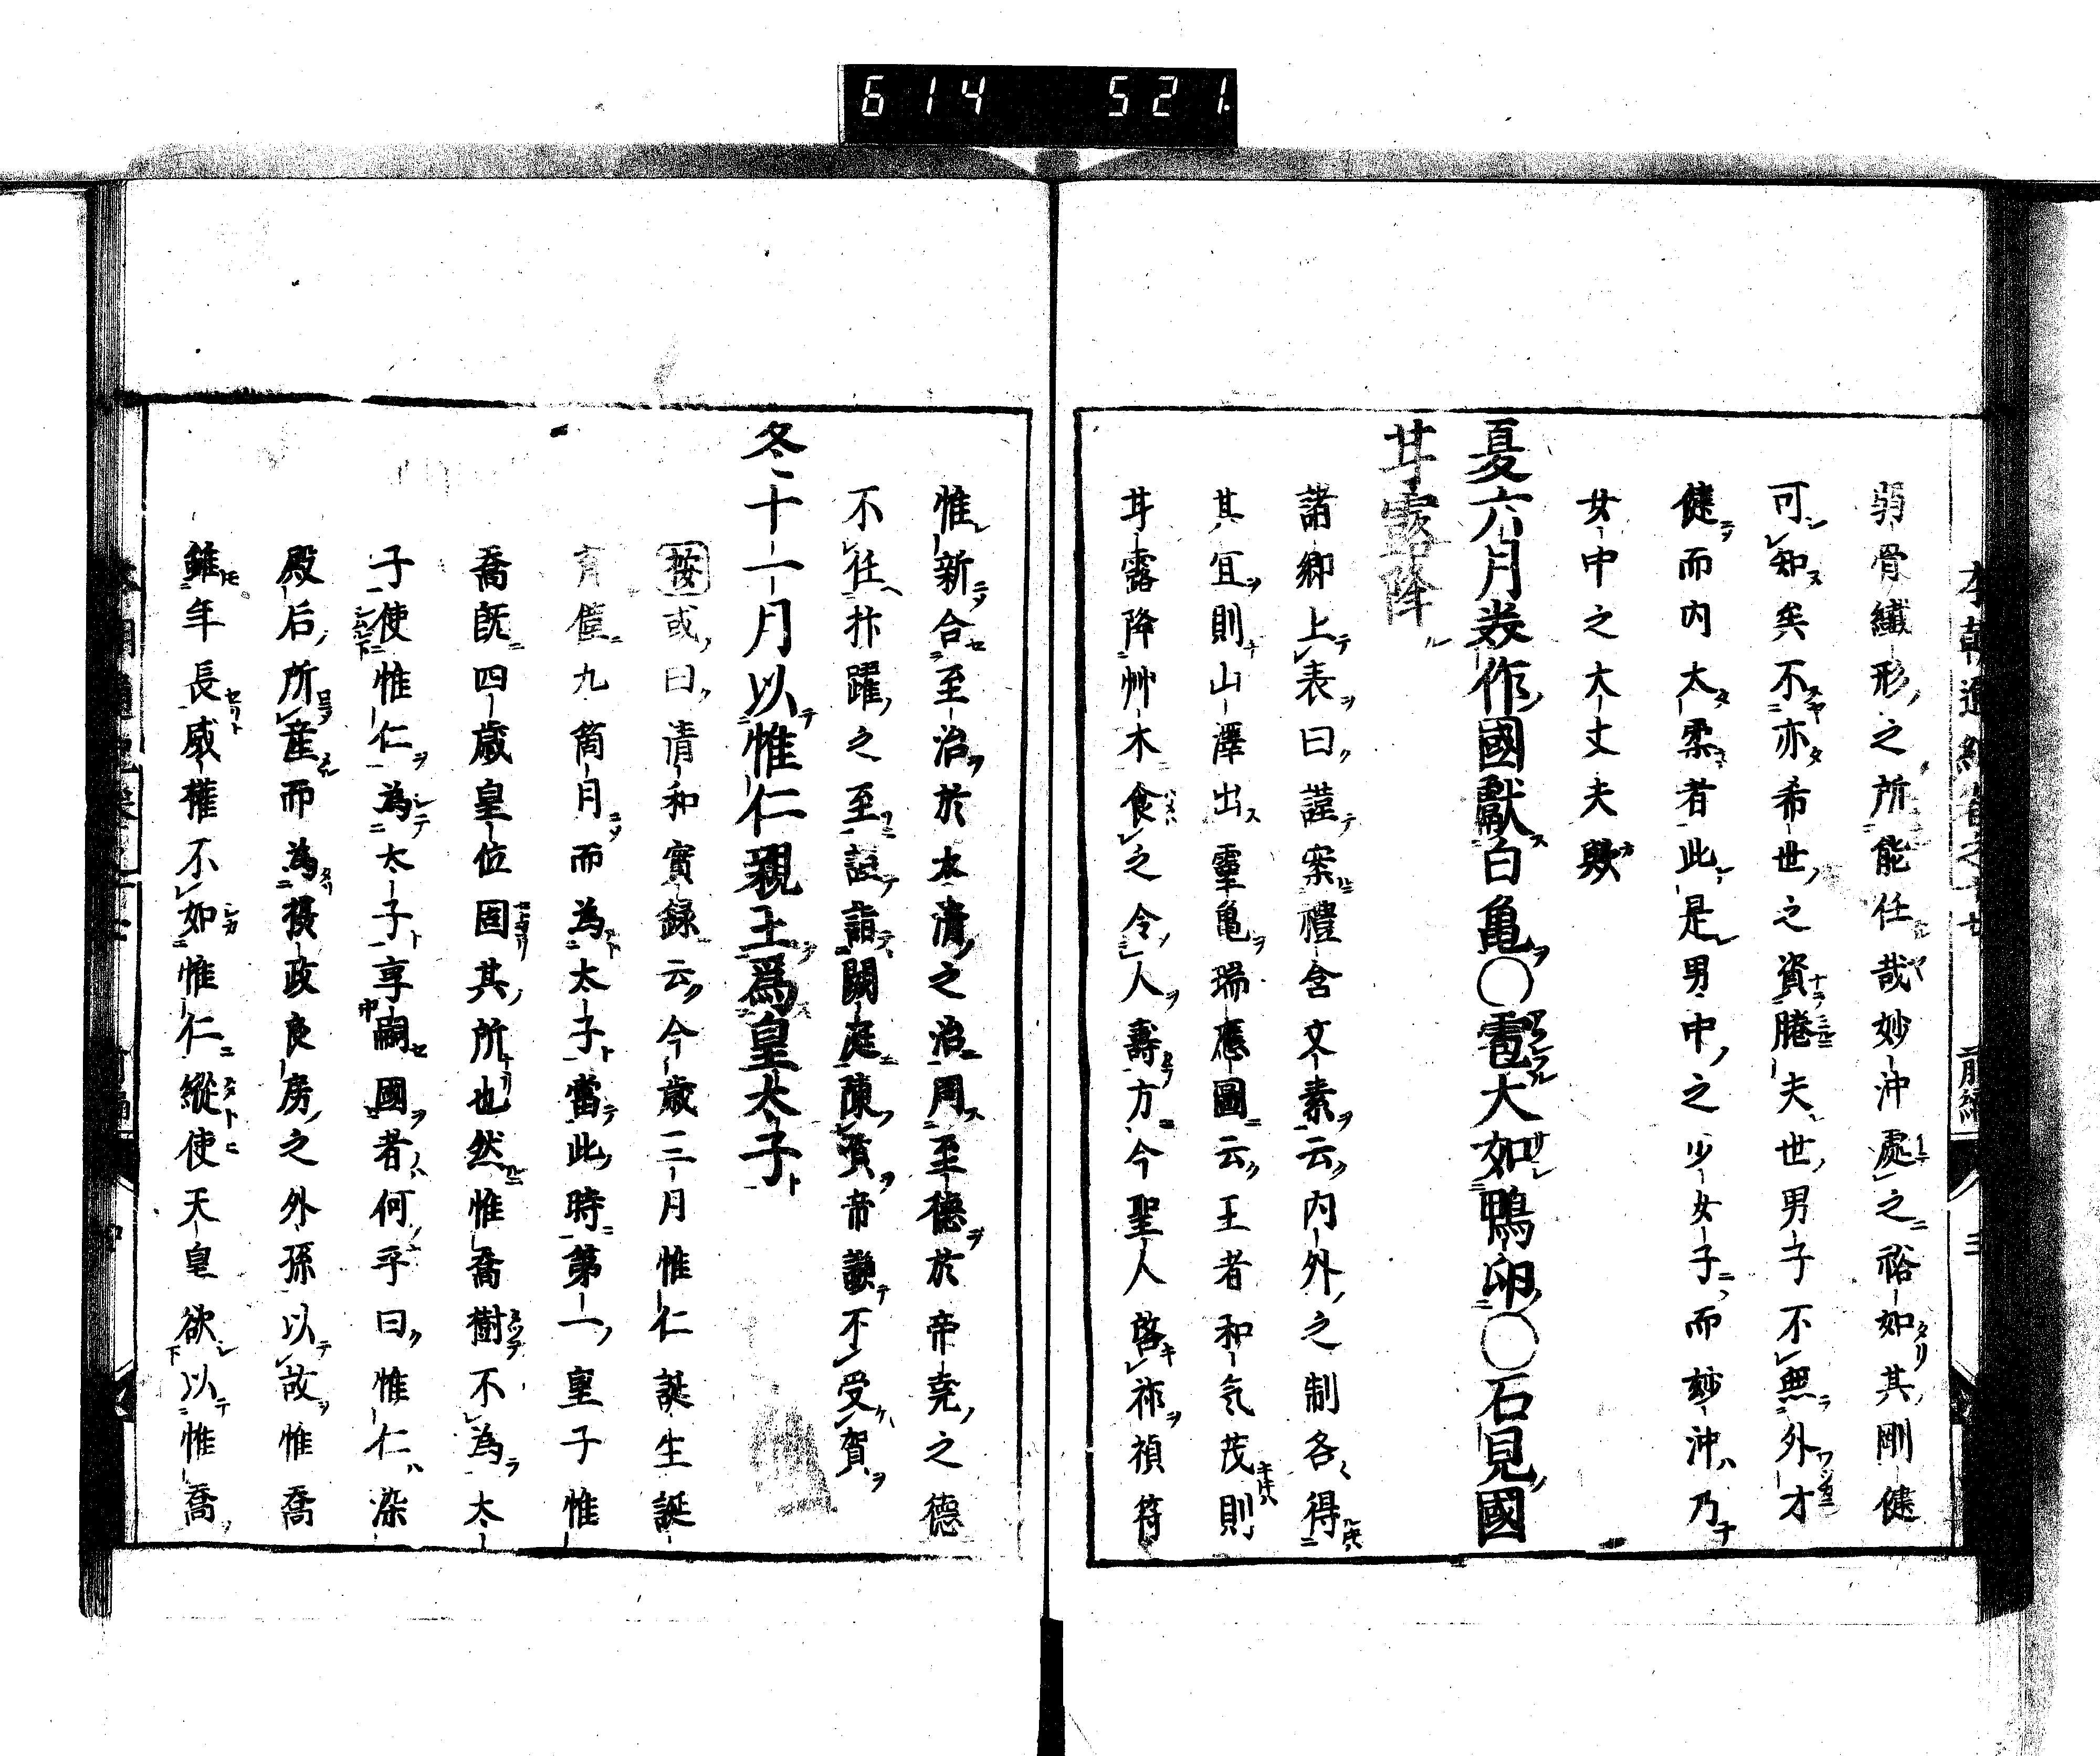 614 521.
弱骨纖形之所能任哉妙沖處之裕如其剛健
可知矣不亦希世之資騰夫世男子不無外才
健而内太柔者此是男中之少女子而妙沖乃
女中之大丈夫歟
夏六月美作國獻白亀〇雹大如鴨卵〇石見國
甘露降
諸卿上表曰謹案禮含文素云内外之制各得
其宜則山澤出靈亀瑞應圖云王者和气茂則
甘露降艸木食之令人壽方今聖人啓祚禎符
惟新合至治於太清之治周至德於帝堯之德
不任抃躍之至謹詣闕庭陳賀帝謙不受賀
冬十一月以惟仁親王爲皇太子
按或曰清和實録云今歳三月惟仁誕生誕
育僅九箇月而為太子當此時第一皇子惟
喬既四歳皇位固其所也然惟喬樹不為太
子使惟仁為太子享嗣國者何乎曰惟仁染
殿后所產而為摂政良房之外孫以故惟喬
雖年長威權不如惟仁縱使天皇欲以惟喬